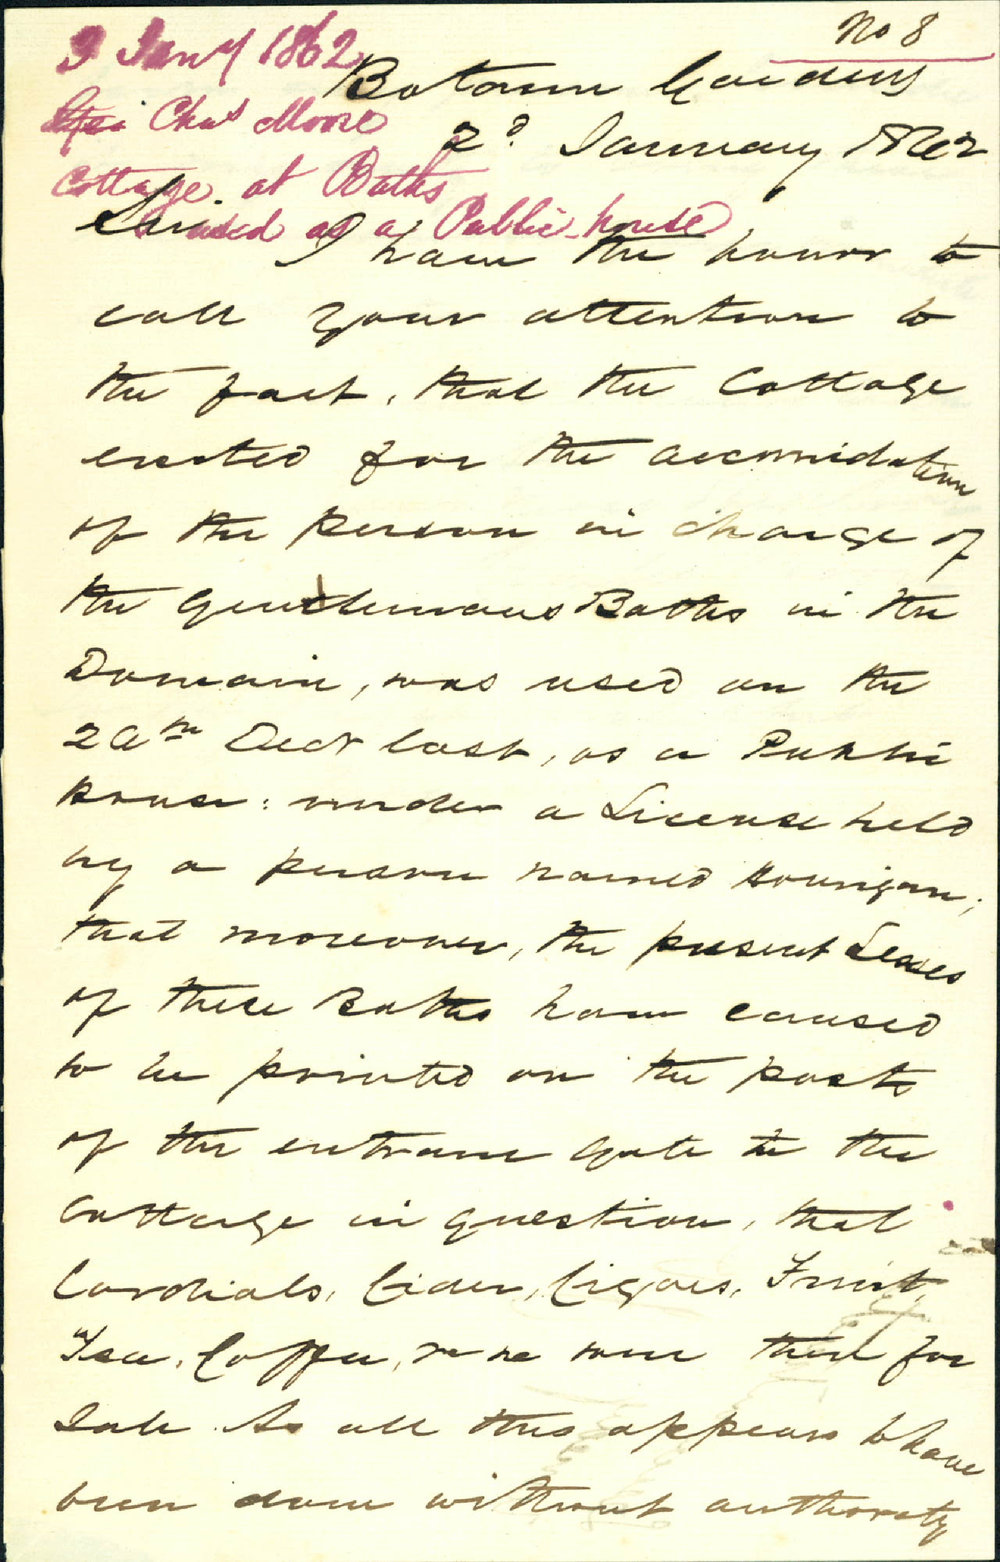 No 8
3 Jany 1862
Chas Moore
Cottage at Baths
used as a Public-house
Botanic Gardens
2d. January 1862
Sir
I have the honor to
call your attention to
the fact, that the Cottage
erected for the accomidation
of the person in charge of
the Gentlemans Baths in the
Domain, was used on the
Decr last, as a Public
House: under a License held
by a person named Hourigan;
that moreover, the present Leases
of these Baths have caused
to be printed on the posts
of the entrance gate to the
Cottage in question, that
Cordials, Cider, Cigars, Fruit,
Tea, Coffee, &c &c were there for
Sale. As all this appears to have
been done without authority